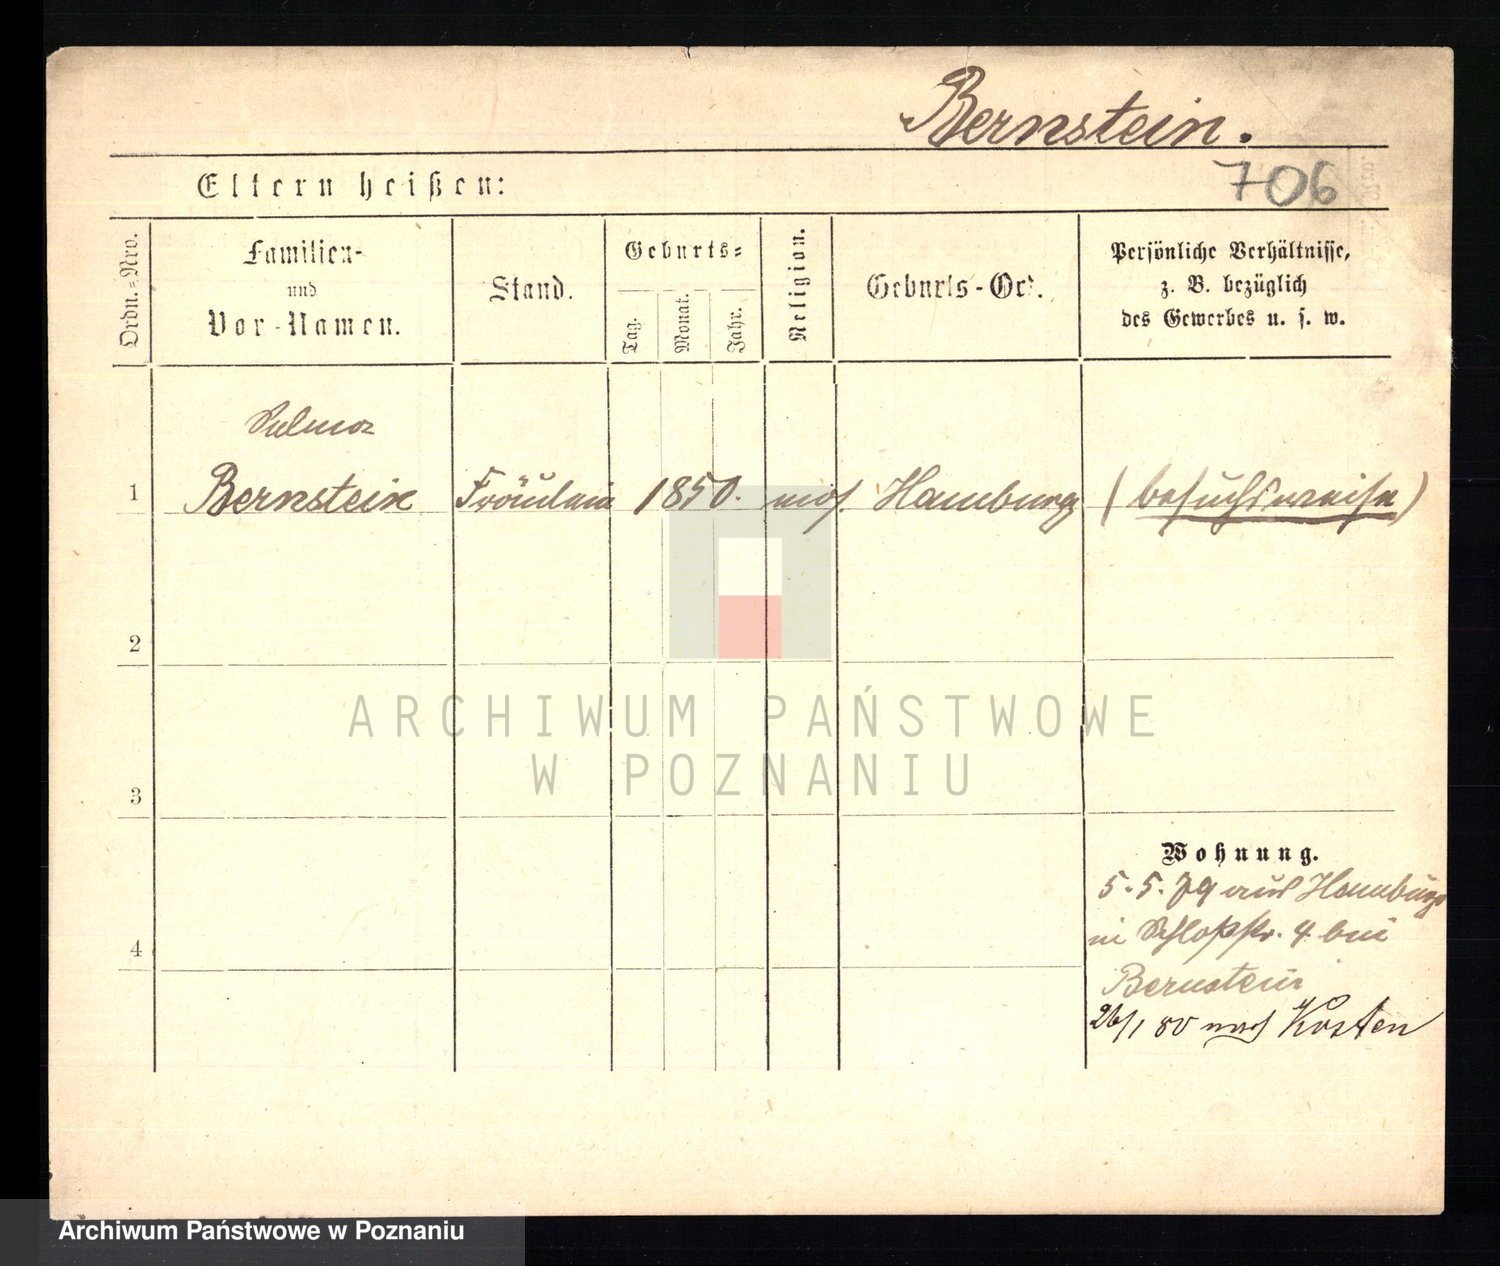 Bernstein.
706
Eltern heißen:
Ordn.-Nro.
Familien-
und
Vor-Namen.
Stand.
Geburts-
Tag.
Monat.
Jahr.
Religion.
Geburts-Ort.
Persönliche Verhältnisse,
z. B. bezüglich
des Gewerbes u. s. w.
Selma
1 Bernstein Fräulein 1850. mos. Hamburg (besuchsweise)
2
3
4
Wohnung.
5.5.79 aus Hamburg
in Schloßstr. 4 bei
Bernstein
26/1 80 nach Kosten
ARCHIWUM PAŃSTWOWE
W POZNANIU
Archiwum Państwowe w Poznaniu